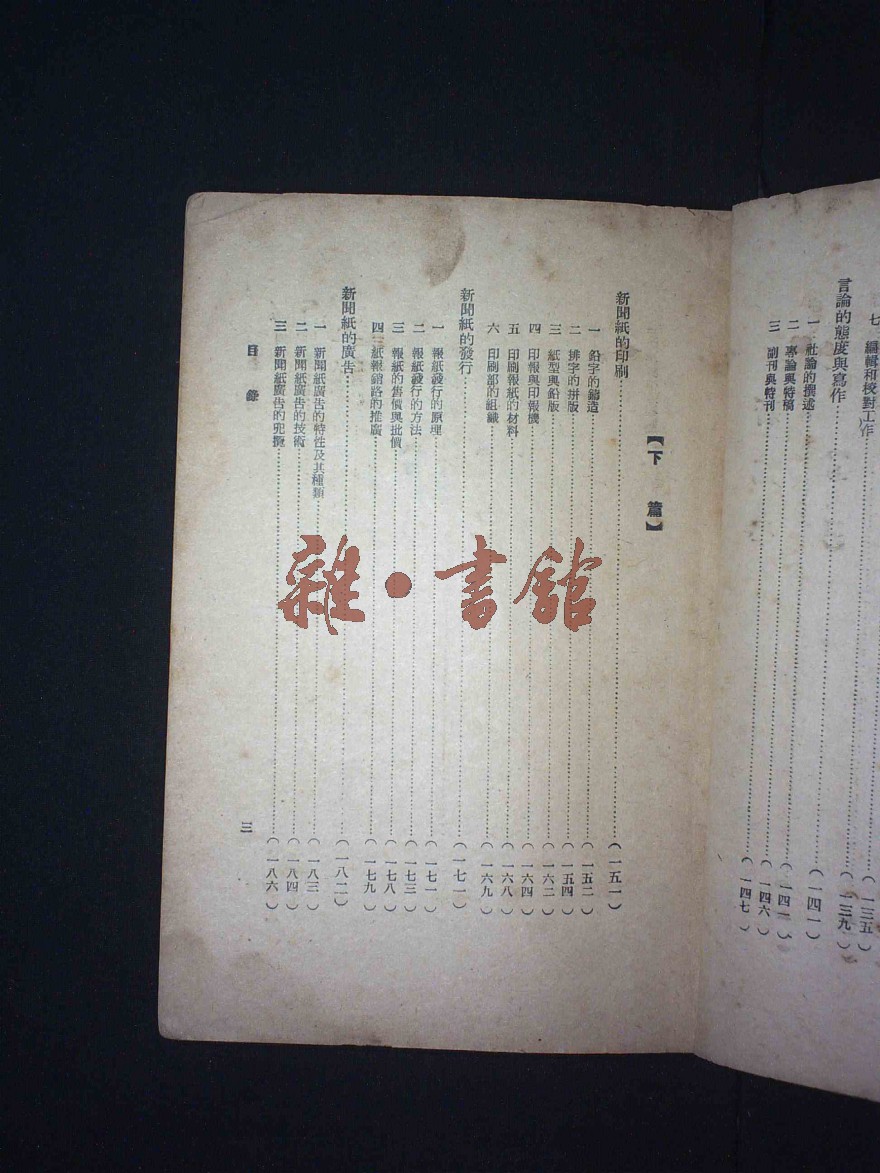 七 編輯和校對工作……(一三五)
言論的態度與寫作……(一三九)
一 社論的撰述……(一四一)
二 專論與特稿……(一四一)
三 副刊與特刊……(一四六)
(一四七)
【下 篇】
新聞紙的印刷……(一五一)
一 鉛字的鑄造……(一五二)
二 排字的拼版……(一五四)
三 紙型與鉛版……(一六二)
四 印報與印報機……(一六四)
五 印刷報紙的材料……(一六八)
六 印刷部的組織……(一六九)
新聞紙的發行……(一七一)
一 報紙發行的原理……(一七一)
二 報紙發行的方法……(一七三)
三 報紙的售價與批價……(一七八)
四 紙報銷路的推廣……(一七九)
新聞紙的廣告……(一八二)
一 新聞紙廣告的特性及其種類……(一八三)
二 新聞紙廣告的技術……(一八四)
三 新聞紙廣告的兜攬……(一八六)
目 錄
三
雜·書館